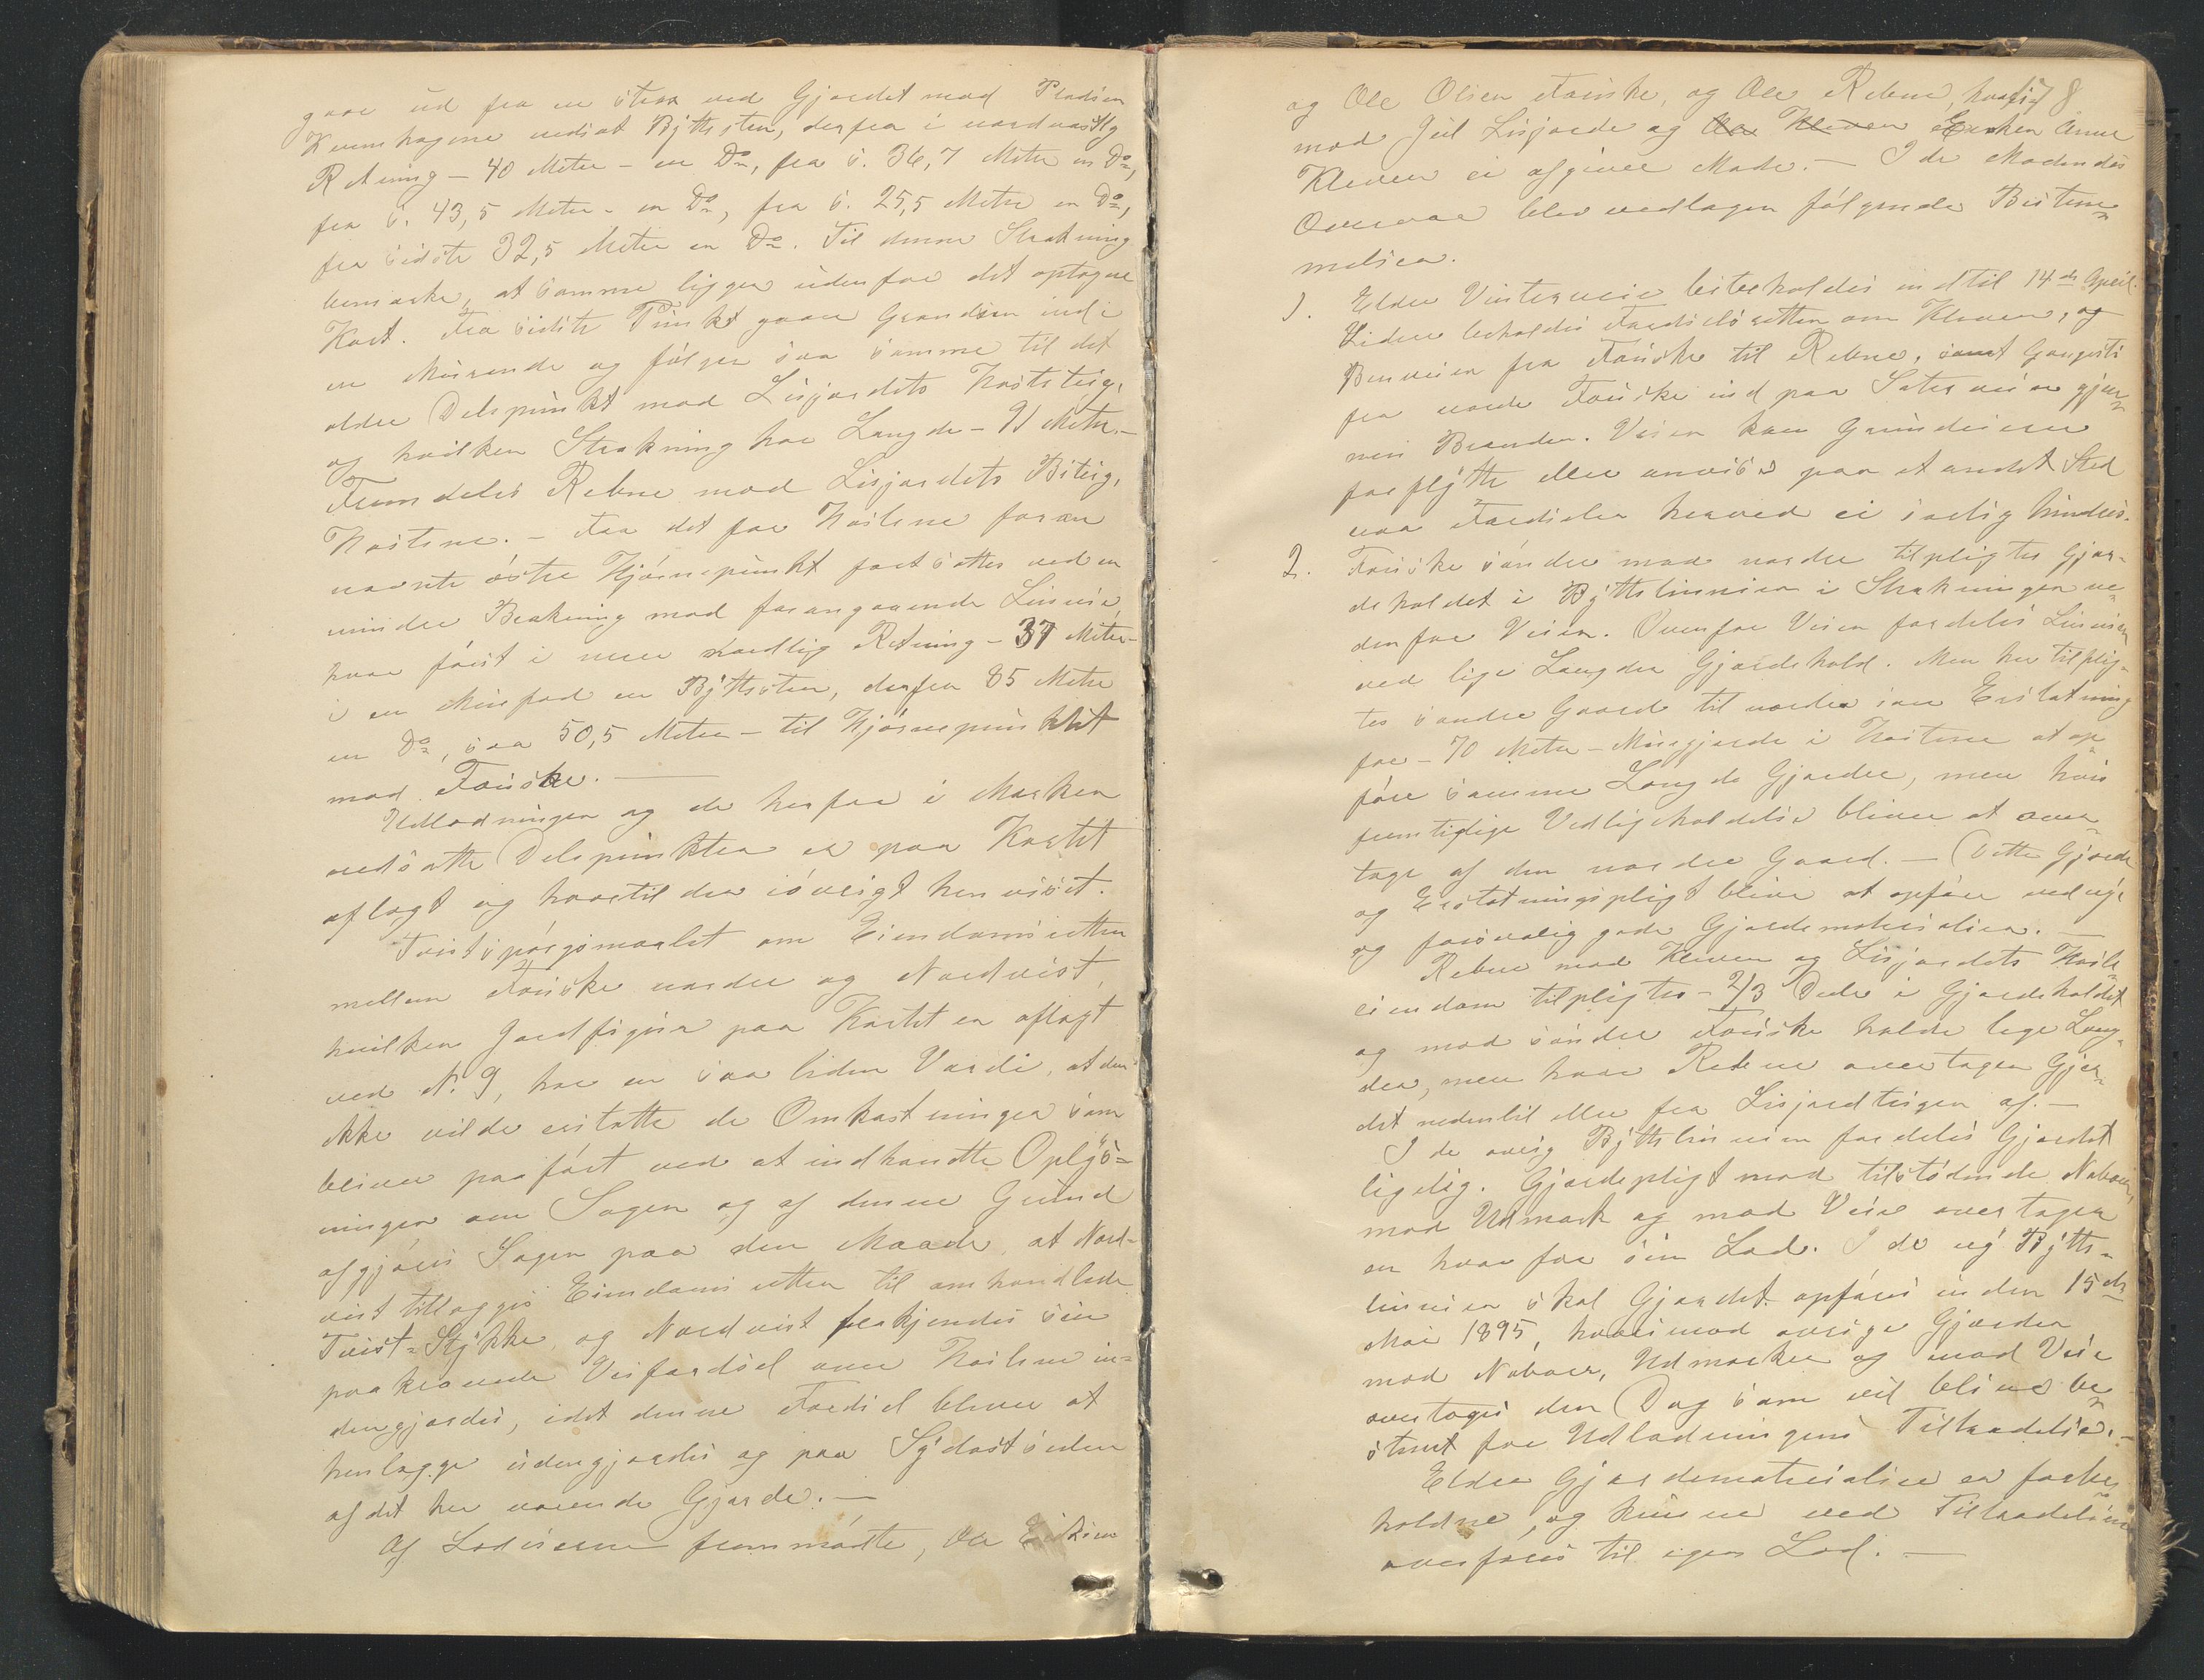 gaar ud fra en sten ved Gjærdet mod Pladsen
Kvernhagene nedsat Byttesten, derfra i nordvestlig
Retning – 40 Meter – en Do, fra s. 36,7 Meter en Do,
fra s. 43,5 Meter – en Do, fra s. 25,5 Meter en Do,
fra sidste 32,5 Meter en Do. Til denne Strækning
bemærkes, at samme ligger udenfor det optagne
Kart. Fra sidste Punkt gaar Grændsen ind i
en Murende og følger saa samme til det
ældre Delepunkt mod Lisjordets
og hvilken Strækning har Længde – 91 Meter. –
Fremdeles Rebne mod Lisjordets
– Fra det for foran
nævnte østre Hjørnepunkt fortsættes ved en
mindre Brækning mod forangaaende Linnie,
hvor først i mere nordlig Retning – 37 Meter –
i en Murfod en Byttesten, derfra 85 Meter
en Do, saa 50,5 Meter – til Hjørnepunktet
mod Fauske. —
Udlodningen og de herfor i Marken
nedsatte Delepunkter er paa Kartet
aflagt og hvortil der isvrigt henvises.
Tvistspørgsmaalet om Eiendomsretten
mellem Fauske nordre og Nordvist,
hvilken Jordfigur paa Kartet er aflagt
ved N. 9, har en saa liden Værdi, at den
ikke vilde erstatte de Omkostninger som
bliver paaført ved at indhendte Oplys-
ninger om Sagen og af denne Grund
afgjøres Sagen paa den Maade, at Nord-
vist tillægges Eiendomsretten til omhandlede
Tvist-Stykke, og Nordvist frakjendes sin
paakrævede Veifærdsel over in-
dengjærdes, idet denne Færdsel bliver at
henlægge udengjærdes og paa Sydostsiden
af det her værende Gjærde. —
Af Lodeierne fremmødte, Ole Eriksen
og Ole Olsen Fauske, og Ole Rebne, hvorfor 8
mod Jul Lisjorde og Ole Kleven Enken Anne
Kleven ei afgiver Møde. – I de Mødendes
Overvær blev vedtagen følgende Bestem-
melser.
1. Eldre Vinterveie bibeholdes indtil 14de April.
Videre beholdes Færdselsretten om Kleven, og
fra Fauske til Rebne, samt Gangsti
fra nordre Fauske ind paa Sæterveien gjen-
nem Branden. Veien kan Grundeieren
forflytte eller anvises paa et andet Sted
naar Færdselen herved ei særlig hindres.
2. Fauske søndre mod nordre tilpligtes Gjær-
deholdet i Byttelinnien i Strækningen ne-
denfor Veien. Ovenfor Veien fordeles Linnien
ved lige Længder Gjærdehold. Men her tilplig-
tes søndre Gaard til nordre som Erstatning
for – 70 Meter – Murgjærde i at op-
føre samme Længde Gjærde, men hvis
fremtidige Vedligeholdelse bliver at over-
tage af den nordre Gaard. – Dette Gjærde
og Erstatningspligt bliver at opføre ved nye
og forsvarlig gode Gjærdematerialier. –
Rebne mod Kleven og Lisjordets
eiendom tilpligtes – 2/3 Dele i Gjærdeholdet
og mod søndre Fauske holde lige Læng-
der, men hvor Rebne overtager Gjær-
det nedentil eller fra Lisjordteigen af. –
I de øvrig Byttelinnien fordeles Gjærdet
ligelig. Gjærdepligt mod tilstødende Naboer,
mod Udmark og mod Veie overtager
en hver for sin Lod. I de ny Bytte-
linnien skal Gjærdet opføres inden 15de
Mai 1895, hvorimod øvrige Gjærder
mod Naboer, Udmarker og mod Veie
overtages den Dag som vil blive be-
stemt for Udlodningens Tiltrædelse. –
Eldre Gjærdematerialier er forbe-
holdne, og kunne ved Tiltrædelsen
overføres til egen Lod. —